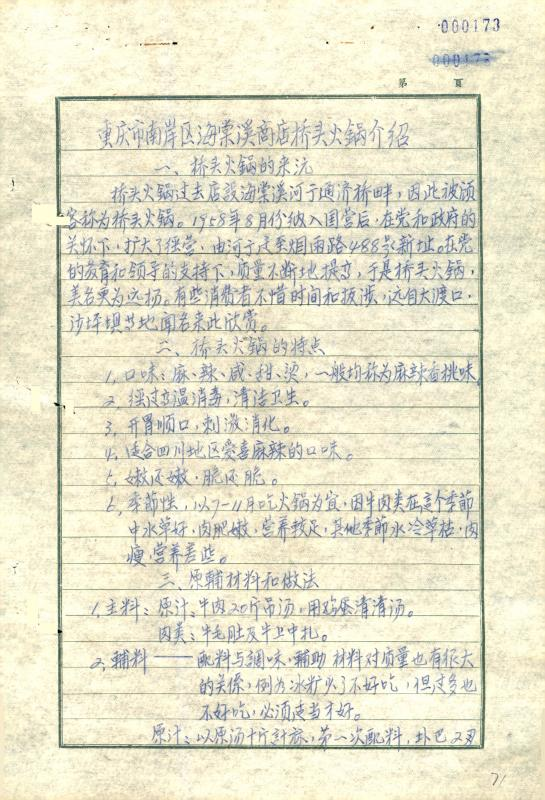 000173
000173
第 頁
重庆市南岸区海棠溪商店桥头火锅介绍
一、桥头火锅的来沅
桥头火锅过去店設海棠溪河干通济桥畔，因此被顾
客称为桥头火锅。1958年8月份纳入国营后，在党和政府的
关怀下，扩大了经营，由河干迁至烟雨路488号新址。在党
的教育和领导的支持下，质量不断地提高，于是桥头火锅，
美名更为远扬。有些消费者不惜时间和拔涉，远自大渡口，
沙坪坝等地闻名来此欣赏。
二、桥头火锅的特点
1、口味：麻、辣、咸、甜、烫，一般均称为麻辣香桃味
2、经过高温消毒，清洁卫生。
3、开胃顺口，刺激消化。
4、适合四川地区爱喜麻辣的口味。
5、嫩还嫩，脆还脆。
6、季節性，以7-11月吃火锅为宜，因牛肉类在这个季節
中水草好，肉肥嫩，营养较足，其他季節水冷草枯，肉
瘦，营养差些。
三、原辅材料和做法
1、主料：原汁：牛肉20斤吊汤，用鸡蛋清清汤。
肉类：牛毛肚及牛卫中扎。
2、輔料——配料与調味，輔助材料对质量也有很大
的关係，例为冰柠少了不好吃，但过多也
不好吃，必须适当才好。
原汁：以原汤十斤計祘，第一次配料，
71